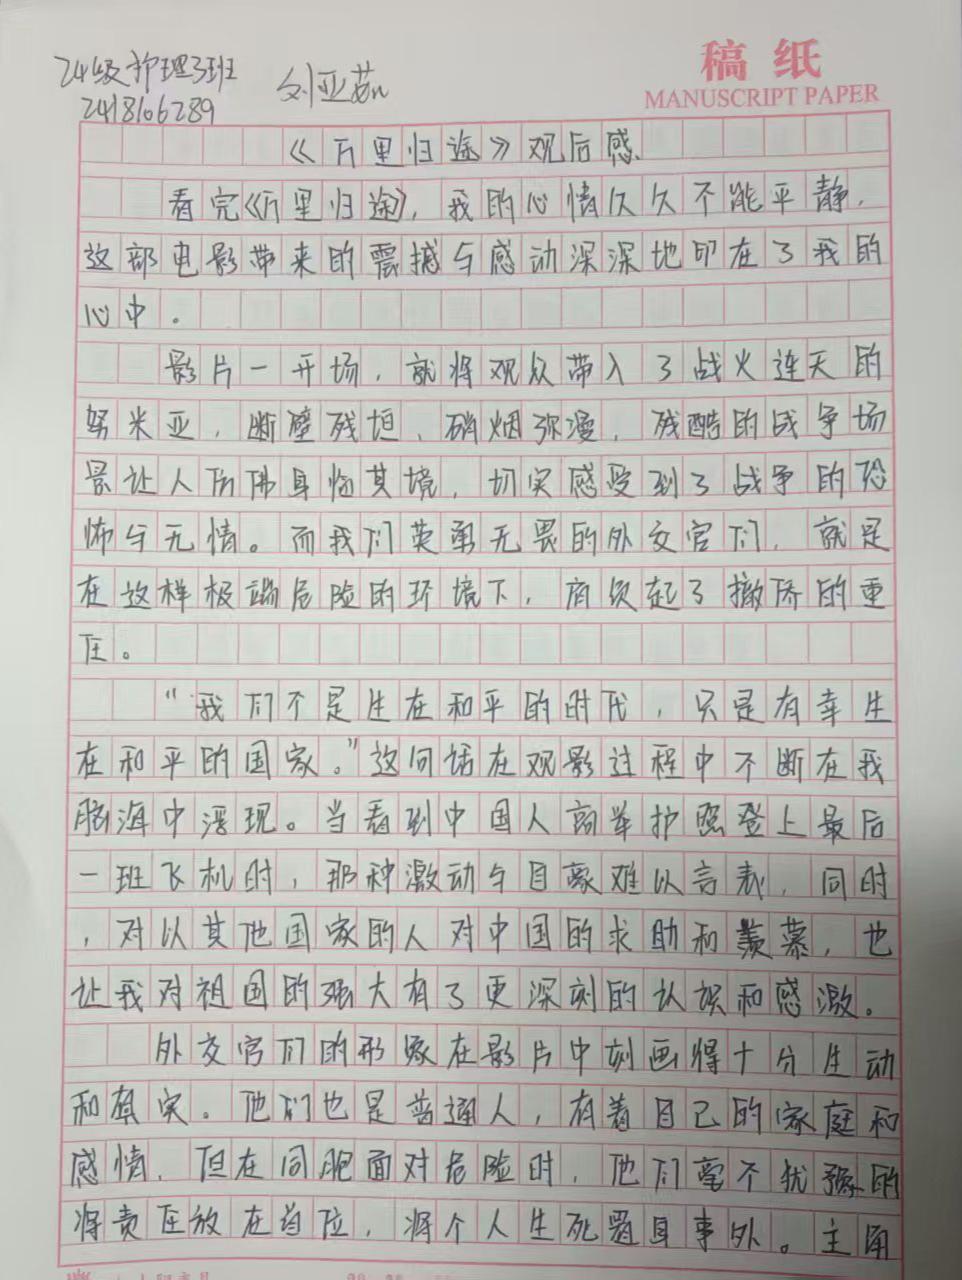 稿纸
MANUSCRIPT PAPER
24级护理3班
刘亚茹
2418106289
《万里归途》观后感
看完《万里归途》，我的心情久久不能平静，
这部电影带来的震撼与感动深深地印在了我的
心中。
影片一开场，就将观众带入了战火连天的
努米亚，断壁残垣、硝烟弥漫，残酷的战争场
景让人仿佛身临其境，切实感受到了战争的恐
怖与无情。而我们英勇无畏的外交官们，就是
在这样极端危险的环境下，肩负起了撤侨的重
任。
“我们不是生在和平的时代，只是有幸生
在和平的国家。”这句话在观影过程中不断在我
脑海中浮现。当看到中国人高举护照登上最后
一班飞机时，那种激动与自豪难以言表，同时
，对以其他国家的人对中国的求助和羡慕，也
让我对祖国的强大有了更深刻的认误和感激。
外交官们的形象在影片中刻画得十分生动
和真实。他们也是普通人，有着自己的家庭和
感情，但在同胞面对危险时，他们毫不犹豫的
将责任放在首位，将个人生死置身事外。主角